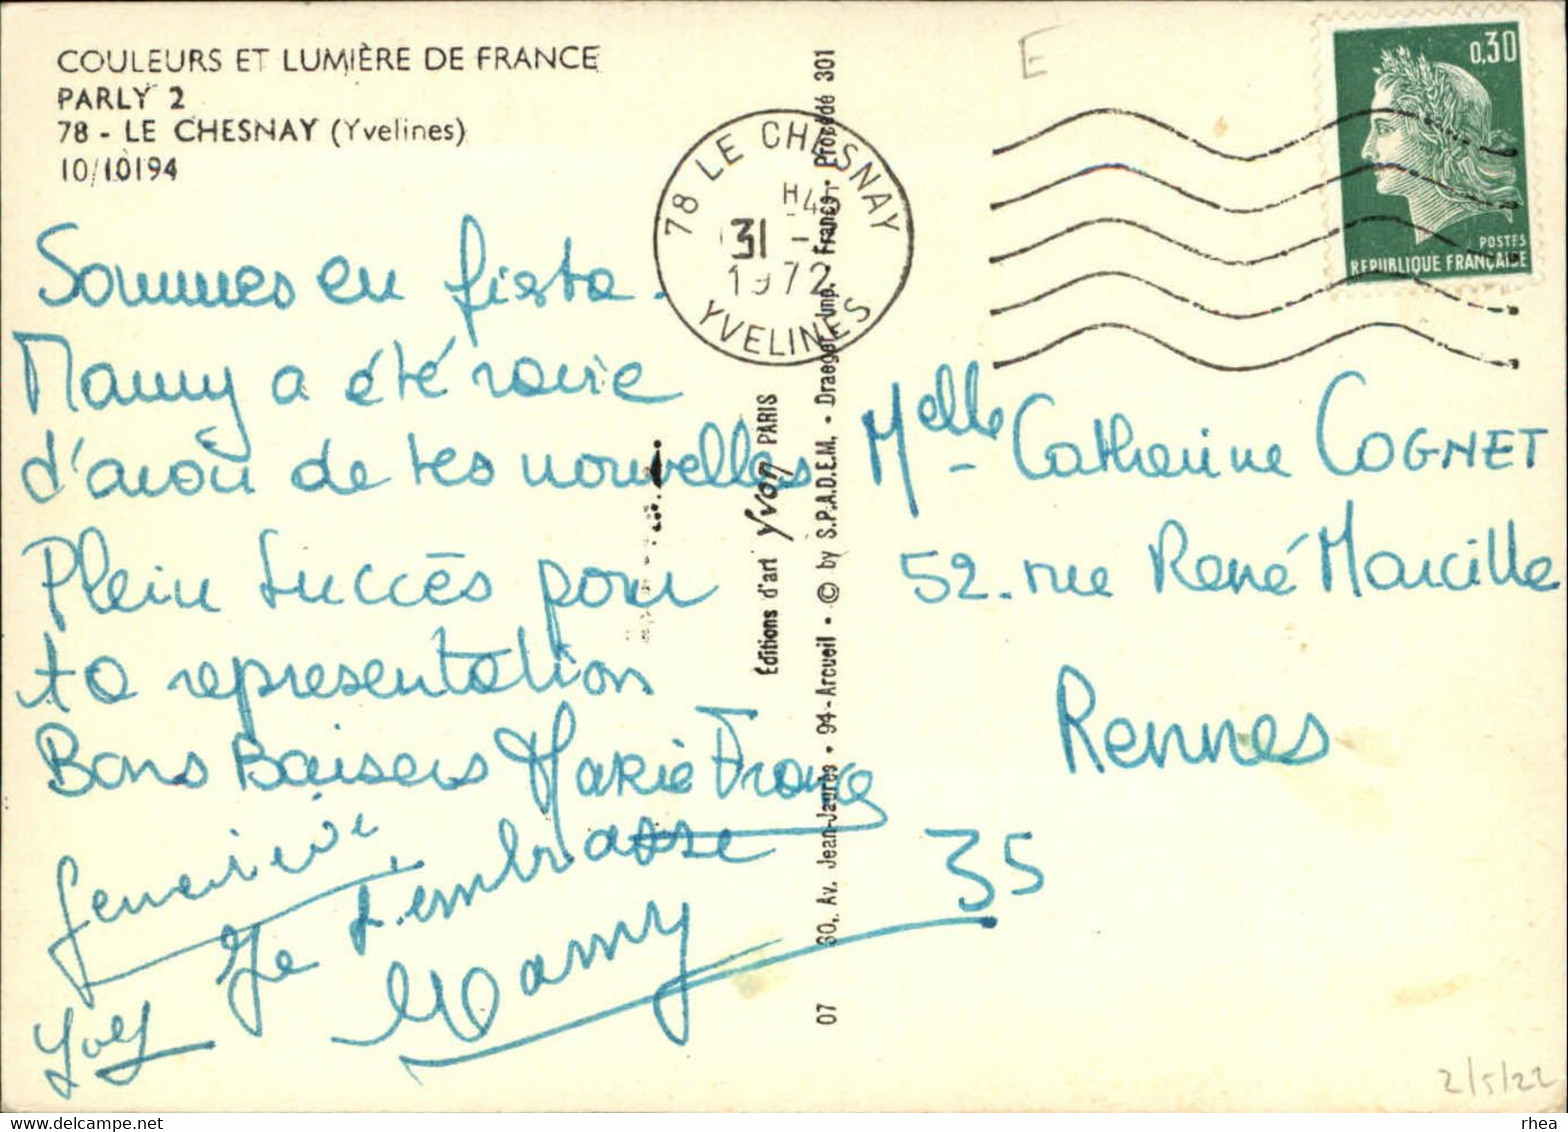 COULEURS ET LUMIÈRE DE FRANCE
PARLY 2
78 - LE CHESNAY (Yvelines)
10/10194
Sommes en fiesta.
Mamy a été ravie
d'avoir de tes nouvelles
Plein succès pour
ta representation
Bons Baisers Marie France
Geneviève
Je t'embrasse
Mamy
Yves
78 LE CHESNAY
31 -
1972
YVELINES
Éditions d'art Yvon PARIS
07 30, Av. Jean-Jaurès • 94-Arcueil • © by S.P.A.D.E.M. • Draeger, Imp. France • Procédé 301
E
0,30
POSTES
REPUBLIQUE FRANÇAISE
Melle Catherine COGNET
52. rue René Marcille
Rennes
35
2/5/22
rhea